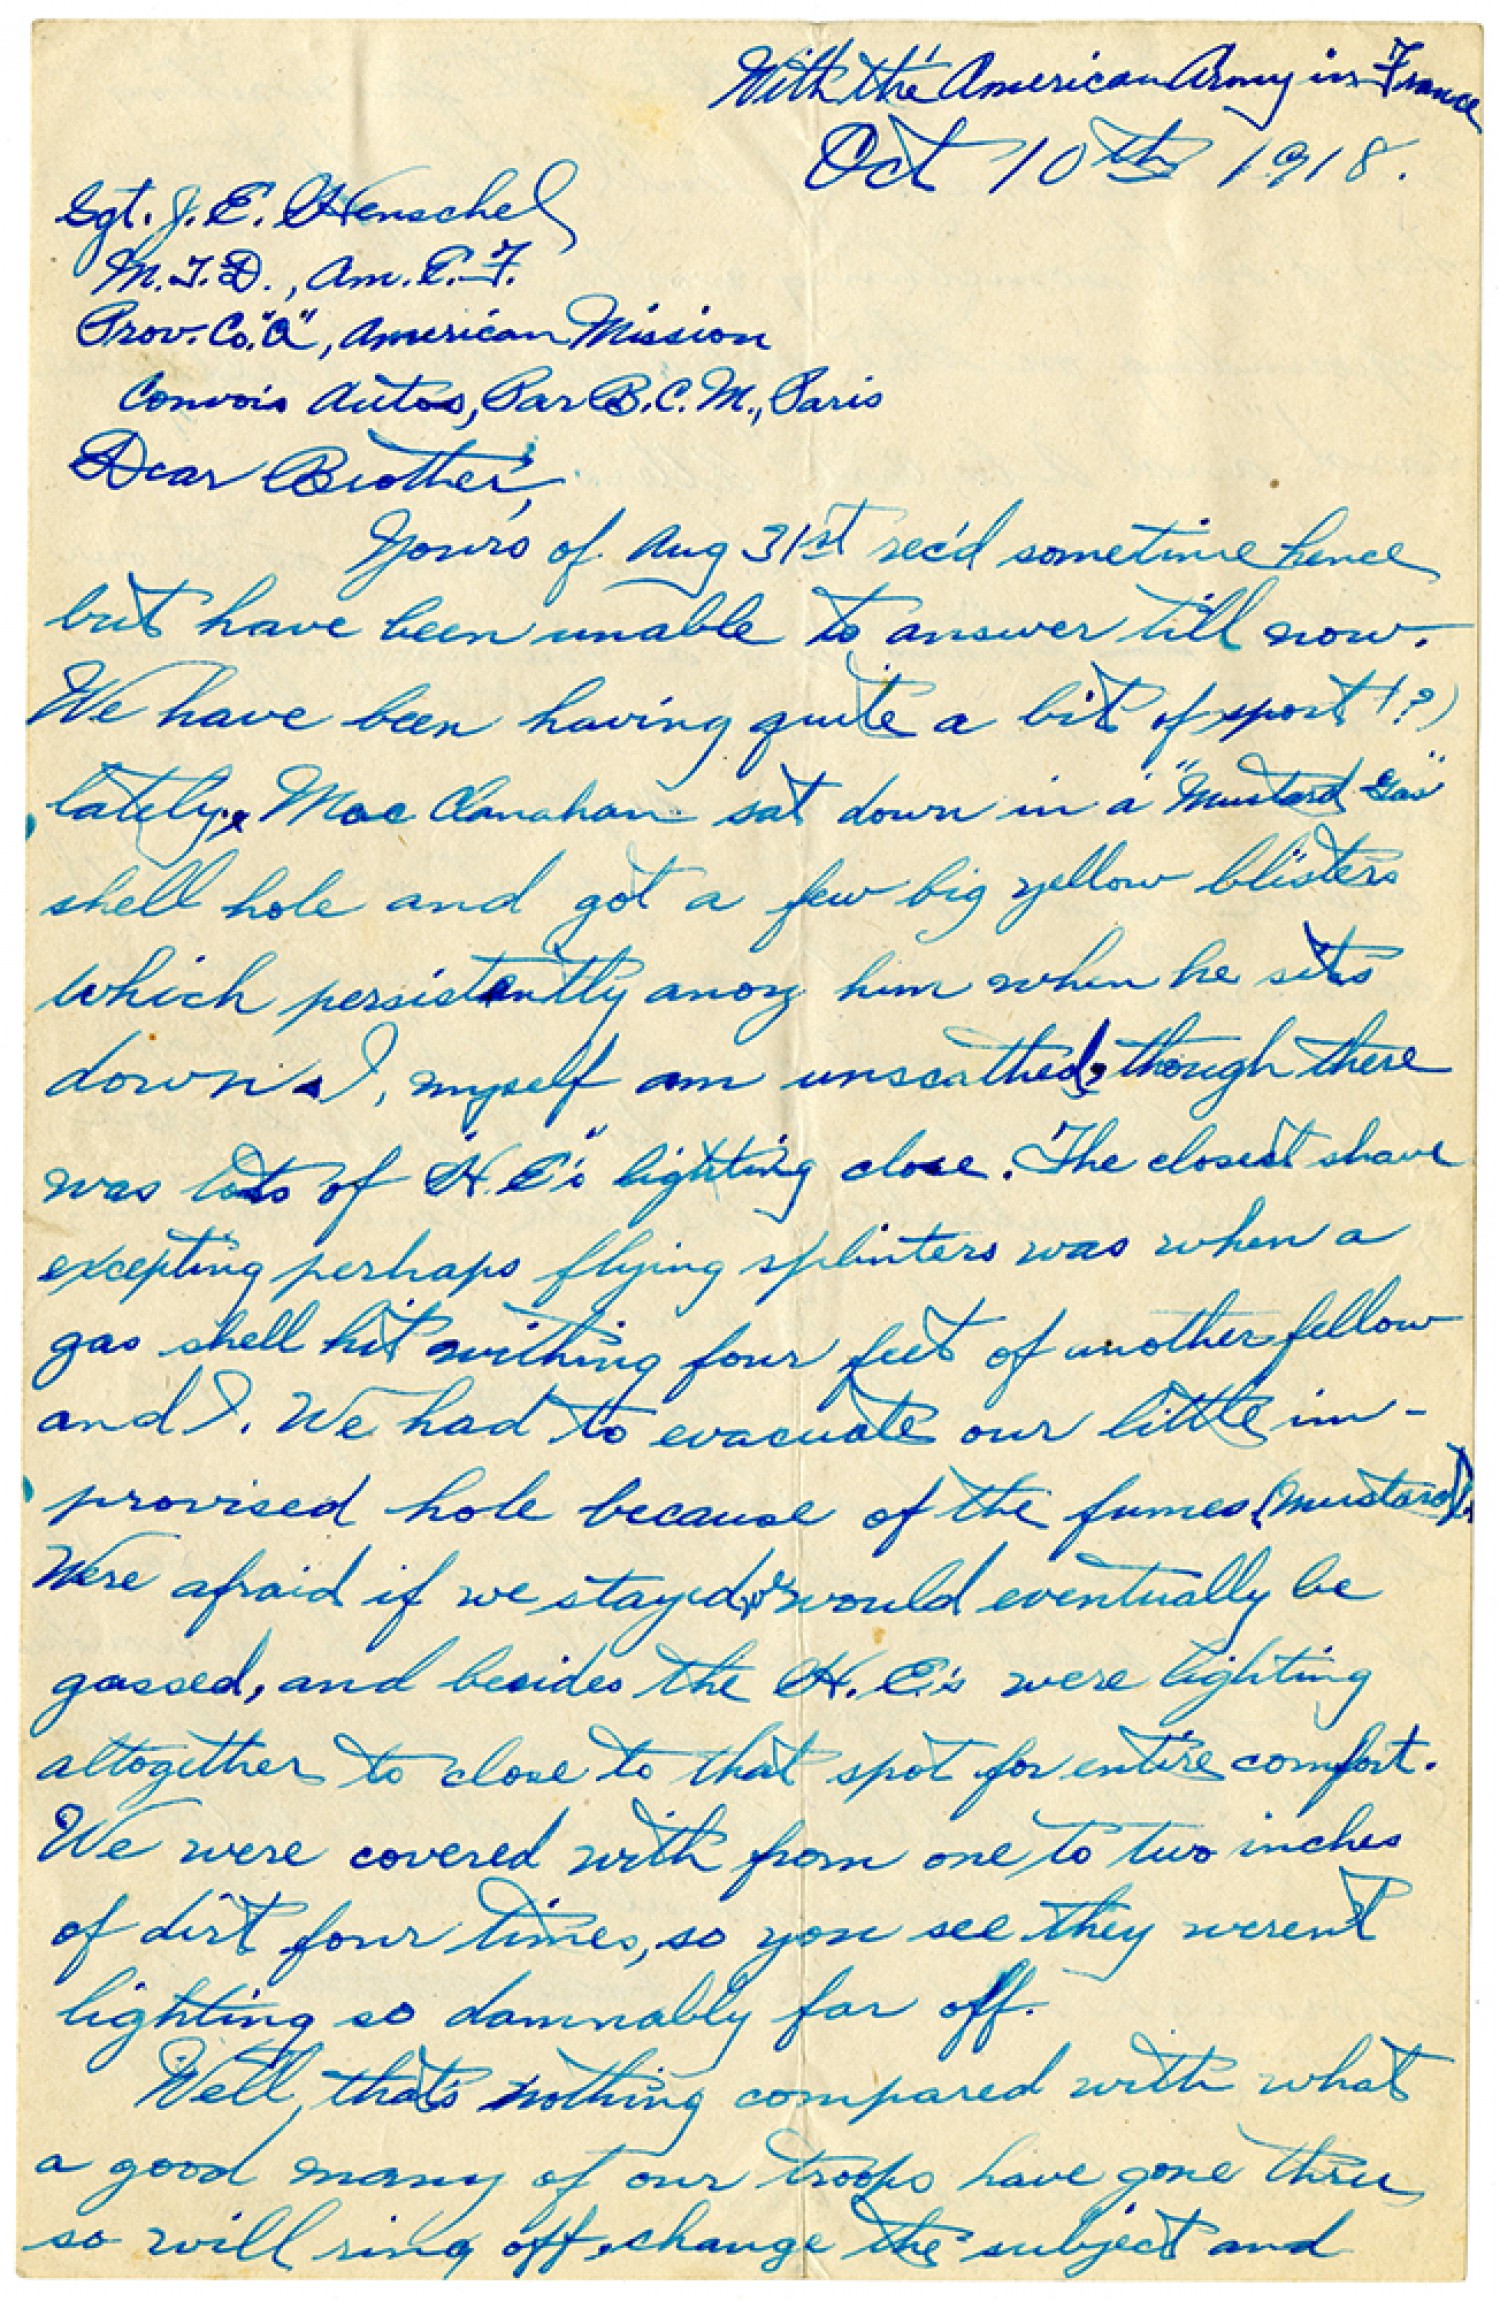 With the American Army in France
Oct 10th 1918.
Sgt. J. E. Henschel
M.T.D., Am. E. F.
Prov. Co. "A", American Mission
Convois Autos, Par B.C.M., Paris
Dear Brother,
Yours of Aug 31st rec'd sometime hence
but have been unable to answer till now.
We have been having quite a bit of sport (?)
lately. Mac Clanahan sat down in a "Mustard Gas"
shell hole and got a few big yellow blisters
which persistantly anoy him when he sits
down. I, myself am unscathed, though there
was lots of "H.E's" lighting close. The closest shave
excepting perhaps flying splinters was when a
gas shell hit withing four feet of another fellow
and I. We had to evacuate our little im-
provised hole because of the fumes (Mustard).
Were afraid if we stayed, we would eventually be
gassed, and besides the H.E.'s were lighting
altogether to close to that spot for entire comfort.
We were covered with from one to two inches
of dirt four times, so you see they weren't
lighting so damnably far off.
Well, that's nothing compared with what
a good many of our troops have gone thru
so will ring off, change the subject and